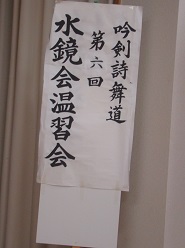 吟剣詩舞道
第六回
水鏡会温習会